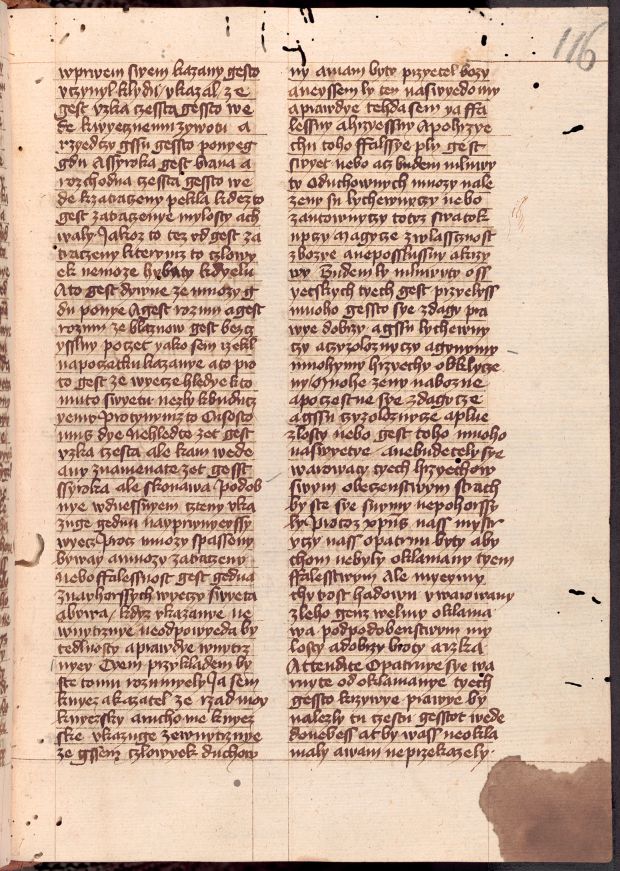 116
wprwem swem kazany gesto
vczynyl klydu vkazal ze
gest vzka czessta gessto we
de kwyecznemu zywotu a
rzyedczy gssu gessto ponyeg
gdu Assyroka gest brana a
rozchodna czessta gessto we
de kzatraczeny pekla kdezto
gest zatraczenye mylosty ach
waly Jakoz to tez vd gest za
traczeny kterymz to czlowy
ek nemoze hybaty kdyelu
Ato gest dywne ze mnozy g
du ponye Agest rozum agest
rozum ze blaznow gest bezcz
ysslny poczet yako sem rzekl
napoczatku kazanye ato pro
to gest ze wyecze hledye kto
muto swyetu nezly kbuducz
yemu Protynymz to Crisosto
mus dye Nehledte zet gest
vzka czesta ale kam wede
any znamenate zet gesst
ssyroka ale skonawa Podob
nye wdnessnyem cztenu vka
zuge gednu nayprwnyeyssy
wyecz Procz mnozy spasseny
bywagy amnozy zatraczeny
nebo ffalessnost gest gedna
znayhorssych wyeczy swyeta
abywa kdyz vkazanye ne
wnytrznye neodpowyeda by
tedlnosty aprawdye wnytrz
nyey Tyem przykladem by
ste tomu rozumyely Ja sem
knyez akazatel ze rzad moy
knyezsky aruchome knyez
ske vkazuge zewnytrznye
ze gssem czlowyek duchow
ny amam byty przyetel bozy
aneyssem ly ten naswyedomy
aprawdye tehda sem ya ffa
lessny ahrzyessny Apohrzye
chu toho ffalssye ply gest
swyet nebo acz budem mluwy
ty Oduchownych mnozy nale
zeny su lychewnyczy nebo
zautownyczy totyz swatok
upczy Magycze zwlasscznost
zbozye aneposslussny akrzy
wy Budem ly mluwyty oss
yetskych tyech gest przyelyss
mnoho gessto sye zdagy pra
wye dobrzy agssu lychewny
czy aczyzoloznyczy agynymy
mnohymy hrzyechy obklycze
ny Mnohe zeny nabozne
apoczestne sye zdagycze
agssu czyzoloznycze aplne
zlosty nebo gest toho mnoho
naswyetye anebudetely sye
warowaty tyech hrzyechow
swym obeczenstwym strach
by ste sye snymy nepohorssy
ly Protoz xpus nass mystr
vczy nass opatrny byty aby
chom nebyly oklamany tyem
ffalesstwym Ale myeymy
chytrost hadowu vwarowany
zleho genz welmy oklama
wa podpodobenstwym my
losty adobroty arzka
Attendite Opatrugye sye wa
ruyte od oklamanye tyech
gessto krzywye prawye by
nalezly tu czestu gesstot wede
donebess at by wass neokla
maly awam neprzekazely